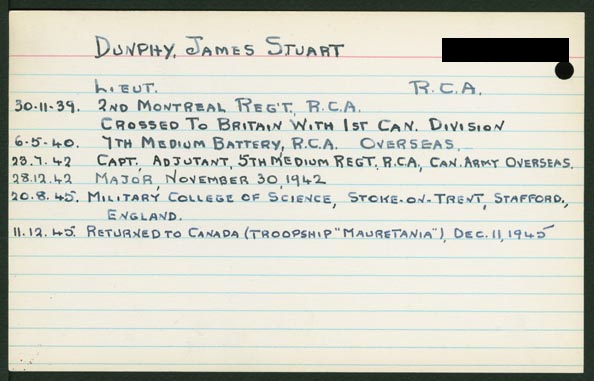 DUNPHY, JAMES STUART
LIEUT. R.C.A.
30-11-39. 2ND MONTREAL REG'T, R.C.A.
CROSSED TO BRITAIN WITH 1ST CAN. DIVISION
6-5-40. 7TH MEDIUM BATTERY, R.C.A. OVERSEAS.
23.7.42 CAPT., ADJUTANT, 5TH MEDIUM REGT. R.C.A., CAN. ARMY OVERSEAS.
28.12.42 MAJOR, NOVEMBER 30, 1942
20.8.45. MILITARY COLLEGE OF SCIENCE, STOKE-ON-TRENT, STAFFORD.,
ENGLAND.
11.12.45. RETURNED TO CANADA (TROOPSHIP "MAURETANIA"), DEC. 11, 1945